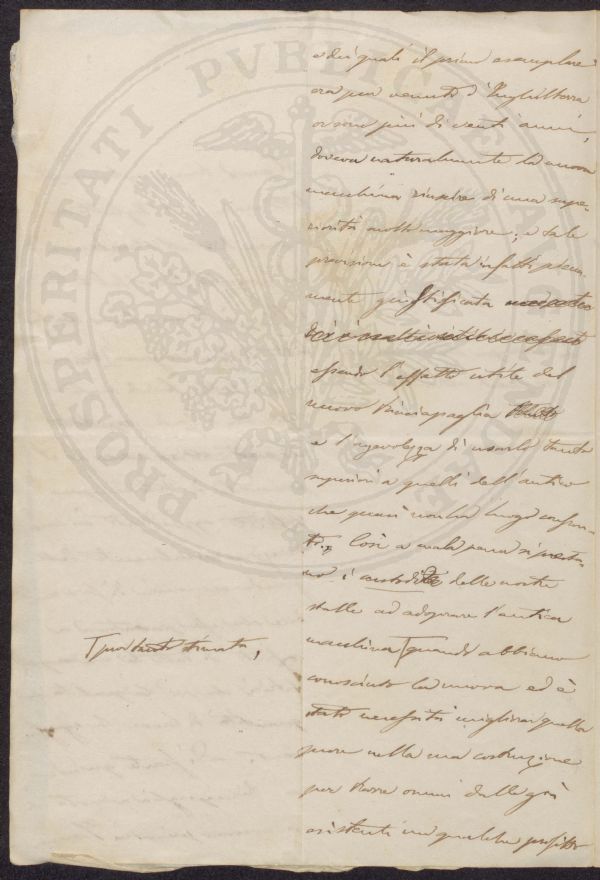 e dei quali il primo esemplare
era pur venuto d'Inghilterra
or sono più di venti anni,
doveva naturalmente la nuova
macchina riuscire di una supe-
riorità molto maggiore; e tale
previsione è stata infatti piena-
mente giustificata
essendo l'effetto utile del
nuovo trinciapaglia
e l'agevolezza di usarlo tanto
superiori a quelli dell'antico
che quasi non ha luogo confron-
to. Così a mala pena si presta-
no i custodi delle nostre
stalle ad adoprare l'antica
macchina quando abbiano
conosciuto la nuova ed è
stato necessità migliorar quella
pure nella sua costruzione
per trarre omai dalle già
esistenti un qualche profitto
pur tanto stimata,
PROSPERITATI PVBLICAE AVGENDAE